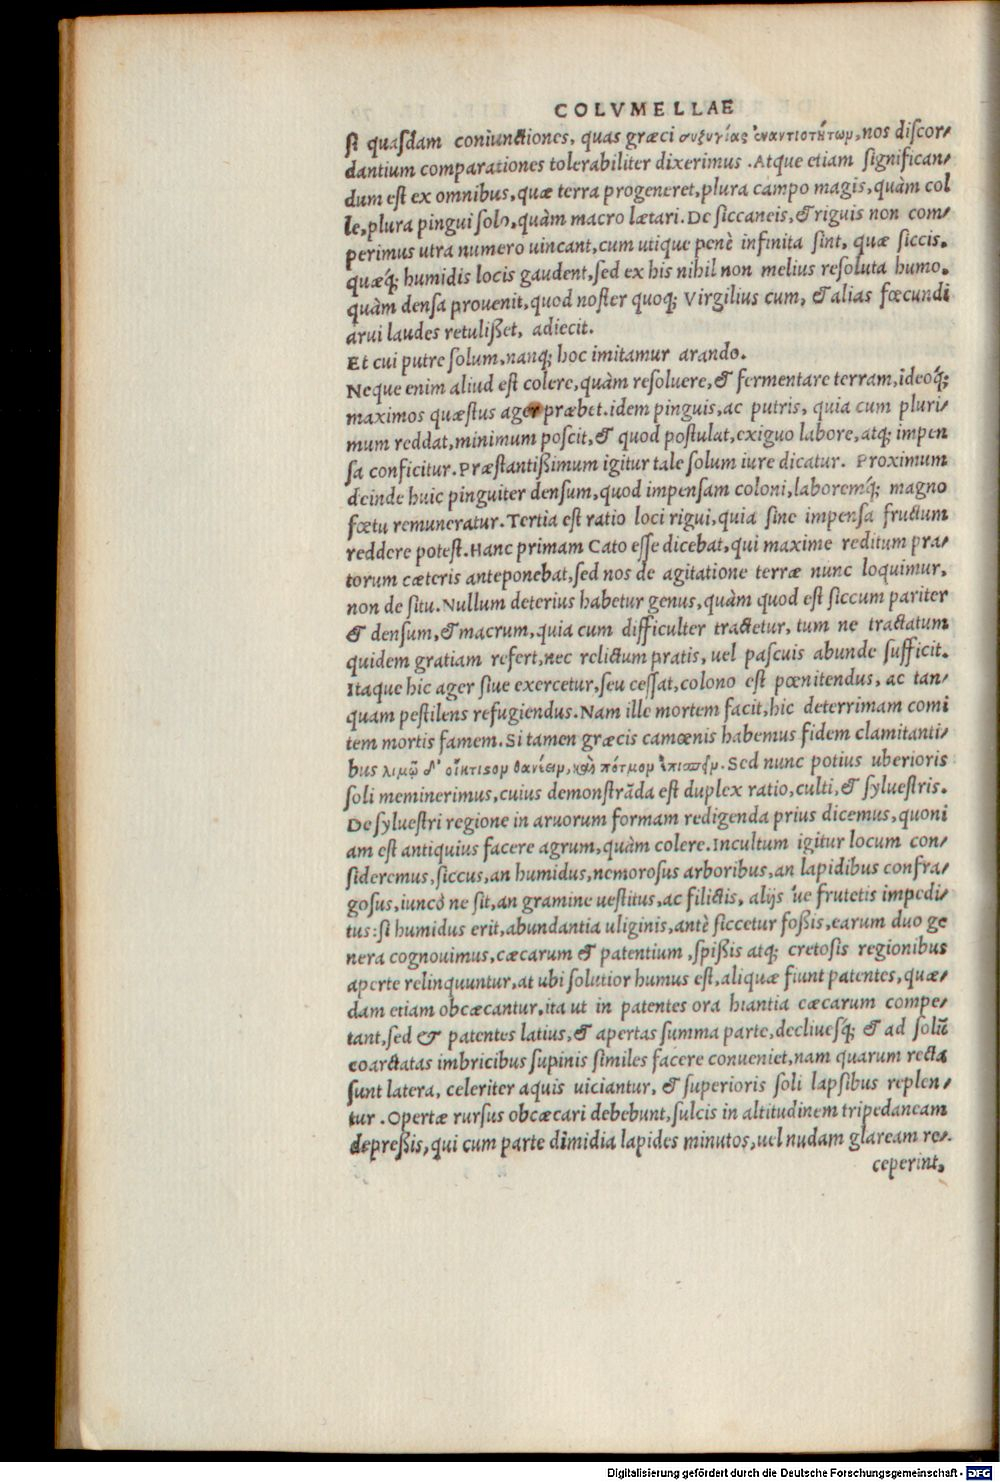 COLVMELLAE
si quasdam coniunctiones, quas græci συζυγίας ἐναντιοτήτωμ, nos discor/
dantium comparationes tolerabiliter dixerimus. Atque etiam significan/
dum est ex omnibus, quæ terra progeneret, plura campo magis, quàm col
le, plura pingui solo, quàm macro lætari. De siccaneis, & riguis non com/
perimus utra numero uincant, cum utique penè infinita sint, quæ siccis,
quæq; humidis locis gaudent, sed ex his nihil non melius resoluta humo,
quàm densa prouenit, quod noster quoq; Virgilius cum, & alias fœcundi
arui laudes retulißet, adiecit.
Et cui putre solum, nanq; hoc imitamur arando.
Neque enim aliud est colere, quàm resoluere, & fermentare terram, ideoq́;
maximos quæstus ager præbet. idem pinguis, ac putris, quia cum pluri/
mum reddat, minimum poscit, & quod postulat, exiguo labore, atq; impen
sa conficitur. Præstantißimum igitur tale solum iure dicatur. Proximum
deinde huic pinguiter densum, quod impensam coloni, laboremq́; magno
fœtu remuneratur. Tertia est ratio loci rigui, quia sine impensa fructum
reddere potest. Hanc primam Cato esse dicebat, qui maxime reditum pra/
torum cæteris anteponebat, sed nos de agitatione terræ nunc loquimur,
non de situ. Nullum deterius habetur genus, quàm quod est siccum pariter
& densum, & macrum, quia cum difficulter tractetur, tum ne tractatum
quidem gratiam refert, nec relictum pratis, uel pascuis abunde sufficit.
Itaque hic ager siue exercetur, seu cessat, colono est pœnitendus, ac tan/
quam pestilens refugiendus. Nam ille mortem facit, hic deterrimam comi
tem mortis famem. Si tamen græcis camœnis habemus fidem clamitanti/
bus λιμῶ δ' οἴκτισομ θανέειμ, καὶ πότμομ ἐπισπεῖμ. Sed nunc potius uberioris
soli meminerimus, cuius demonstrāda est duplex ratio, culti, & syluestris.
De syluestri regione in aruorum formam redigenda prius dicemus, quoni
am est antiquius facere agrum, quàm colere. Incultum igitur locum con/
sideremus, siccus, an humidus, nemorosus arboribus, an lapidibus confra/
gosus, iuncò ne sit, an gramine uestitus, ac filictis, alijs úe frutetis impedi/
tus: si humidus erit, abundantia uliginis, antè siccetur foßis, earum duo ge
nera cognouimus, cæcarum & patentium, spißis atq; cretosis regionibus
aperte relinquuntur, at ubi solutior humus est, aliquæ fiunt patentes, quæ/
dam etiam obcæcantur, ita ut in patentes ora hiantia cæcarum compe/
tant, sed & patentes latius, & apertas summa parte, decliuesq́; & ad solū
coarctatas imbricibus supinis similes facere conueniet, nam quarum recta
sunt latera, celeriter aquis uiciantur, & superioris soli lapsibus replen/
tur. Opertæ rursus obcæcari debebunt, sulcis in altitudinem tripedaneam
depreßis, qui cum parte dimidia lapides minutos, uel nudam glaream re/
ceperint,
Digitalisierung gefördert durch die Deutsche Forschungsgemeinschaft - DFG